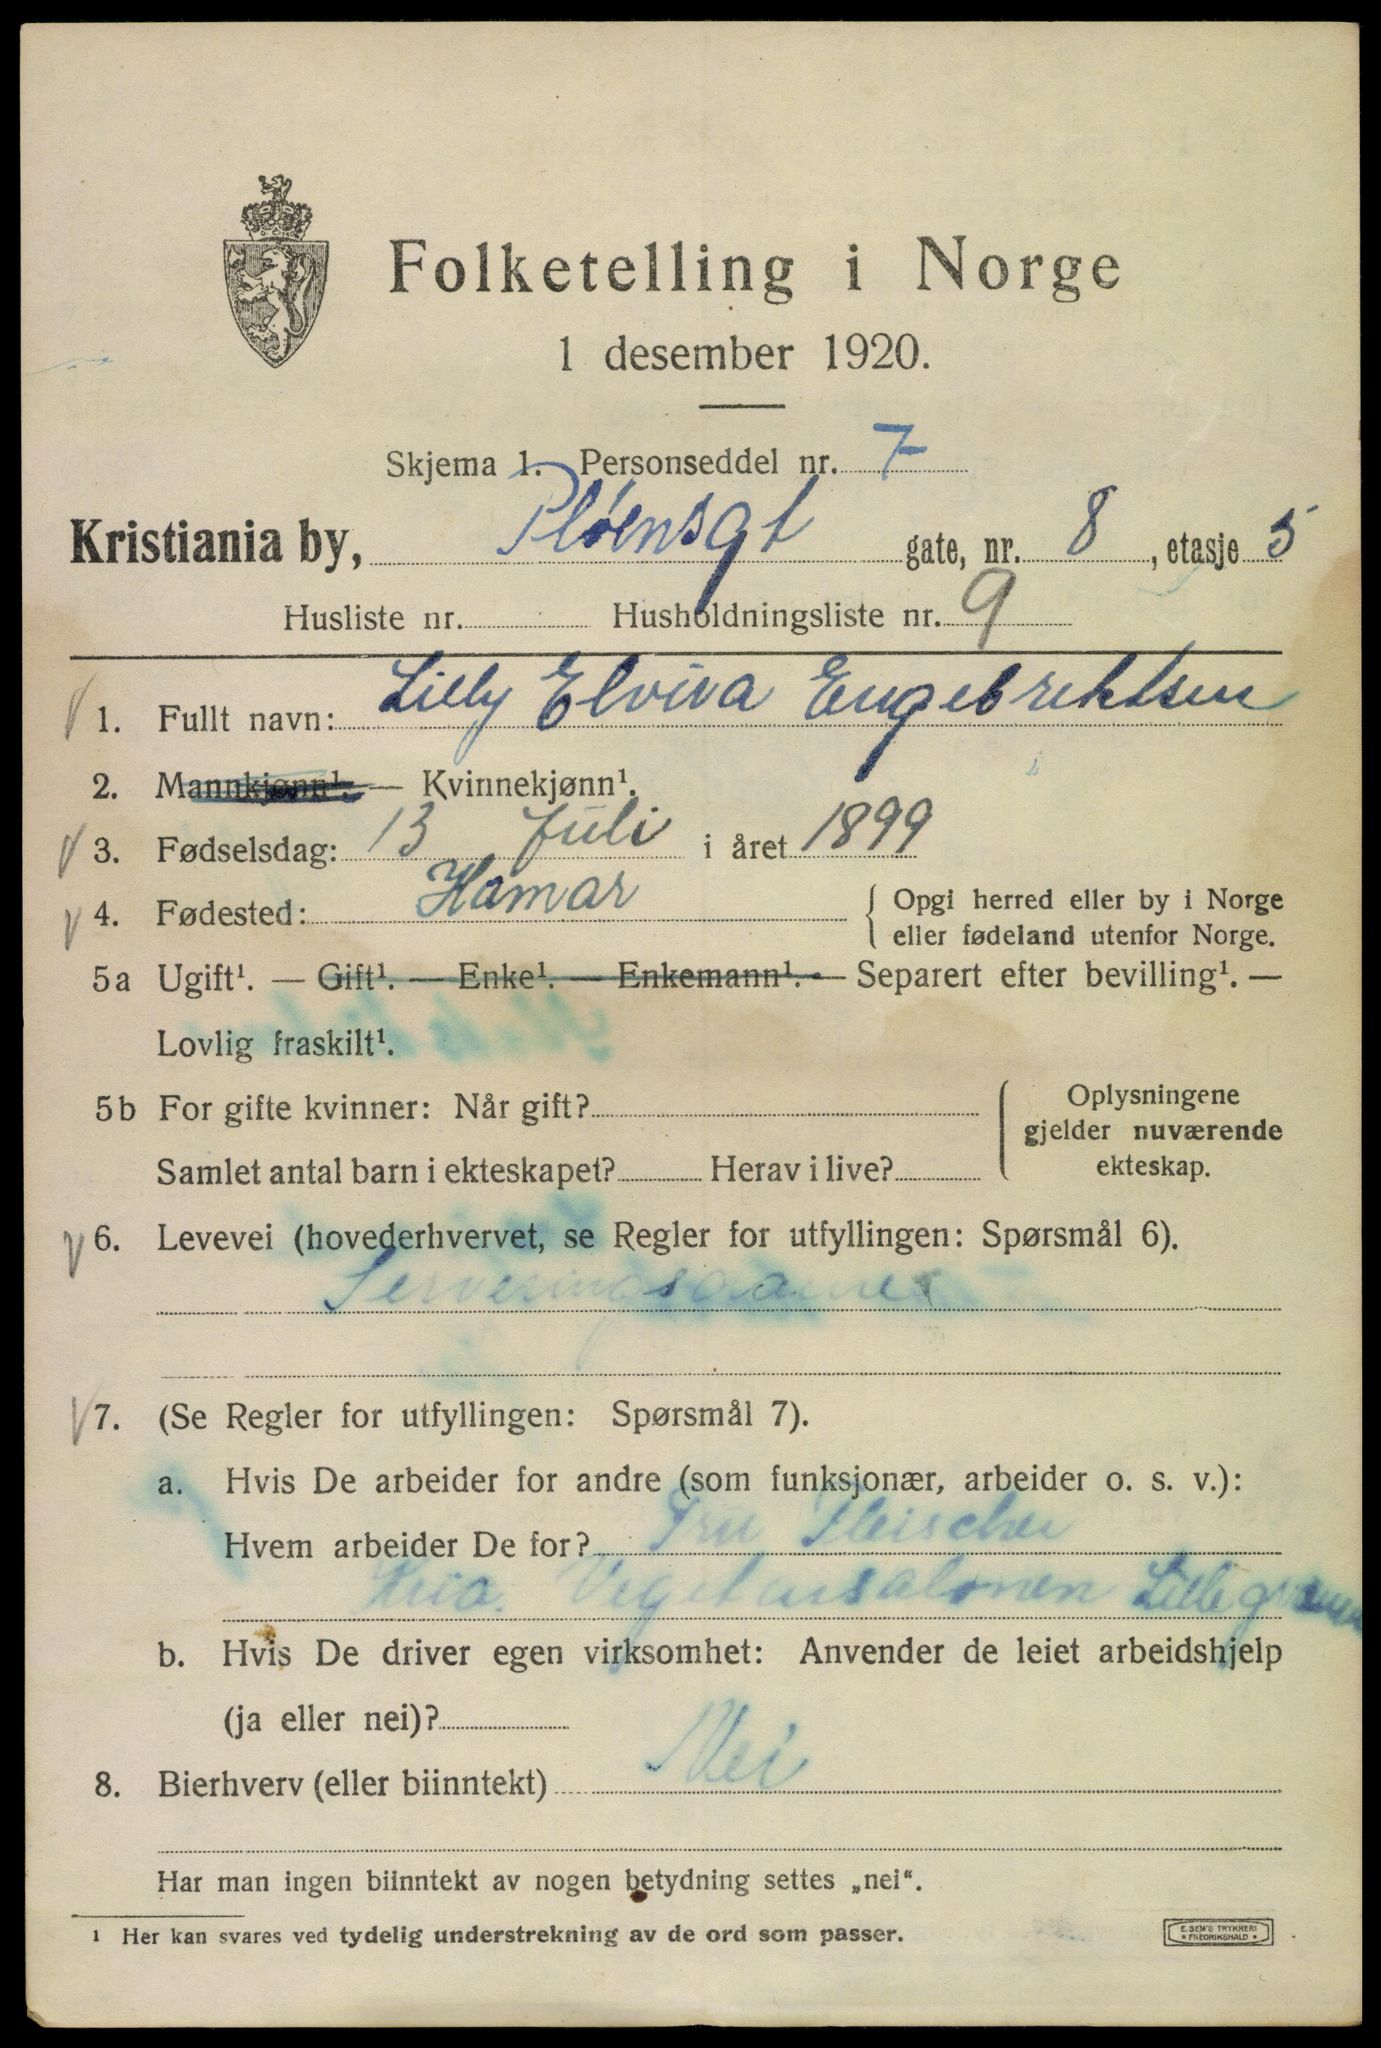 Folketelling i Norge
1 desember 1920.
Skjema 1. Personseddel nr. 7
Kristiania by, Pløensgt gate, nr. 8, etasje 5
Husliste nr. Husholdningsliste nr. 9
1. Fullt navn: Lilly Elvira Engebriktsen
2. Mannkjønn¹. — Kvinnekjønn¹.
3. Fødselsdag: 13 Juli i året 1899
4. Fødested: Hamar { Opgi herred eller by i Norge
eller fødeland utenfor Norge.
5a Ugift¹. — Gift¹. — Enke¹. — Enkemann¹. — Separert efter bevilling¹. —
Lovlig fraskilt¹.
5b For gifte kvinner: Når gift? { Oplysningene
gjelder nuværende
Samlet antal barn i ekteskapet? Herav i live? ekteskap.
6. Levevei (hovederhvervet, se Regler for utfyllingen: Spørsmål 6).
Serveringsdame
7. (Se Regler for utfyllingen: Spørsmål 7).
a. Hvis De arbeider for andre (som funksjonær, arbeider o. s. v.):
Hvem arbeider De for? Fru Fleischer
Kria. Vegetarsalonen
b. Hvis De driver egen virksomhet: Anvender de leiet arbeidshjelp
(ja eller nei)?
8. Bierhverv (eller biinntekt) Nei
Har man ingen biinntekt av nogen betydning settes „nei“.
¹ Her kan svares ved tydelig understrekning av de ord som passer.
E. SEM'S TRYKKERI
* FREDRIKSHALD *